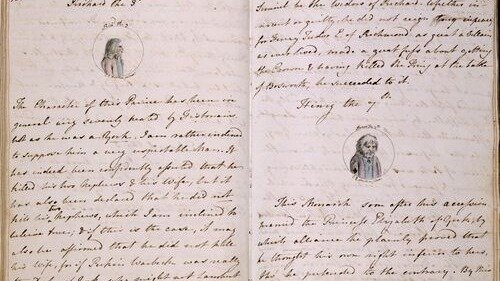 Richard the 3d
The Character of this Prince has been in
general very severely treated by Historians,
but as he was a York, I am rather inclined
to suppose him a very respectable Man. It
has indeed been confidently asserted that he
killed his two Nephews & his Wife, but it
has also been declared that he did not
kill his two Nephews, which I am inclined to
beleive true; & if this is the case, it may
also be affirmed that he did not kill
his Wife, for if Perkin Warbeck was really
the Duke of York, why might not Lambert
Simnel be the Widow of Richard. Whether in
nocent or guilty, he did not reign long in peace
for Henry Tudor E. of Richmond as great a Villain
as ever lived, made a great fuss about getting
the Crown & having killed the King at the battle
of Bosworth, he succeeded to it.
Henry the 7th
This Monarch soon after his accession
married the Princess Elizabeth of York, by
which alliance he plainly proved that
he thought his own right inferior to hers,
tho' he pretended to the contrary. By this